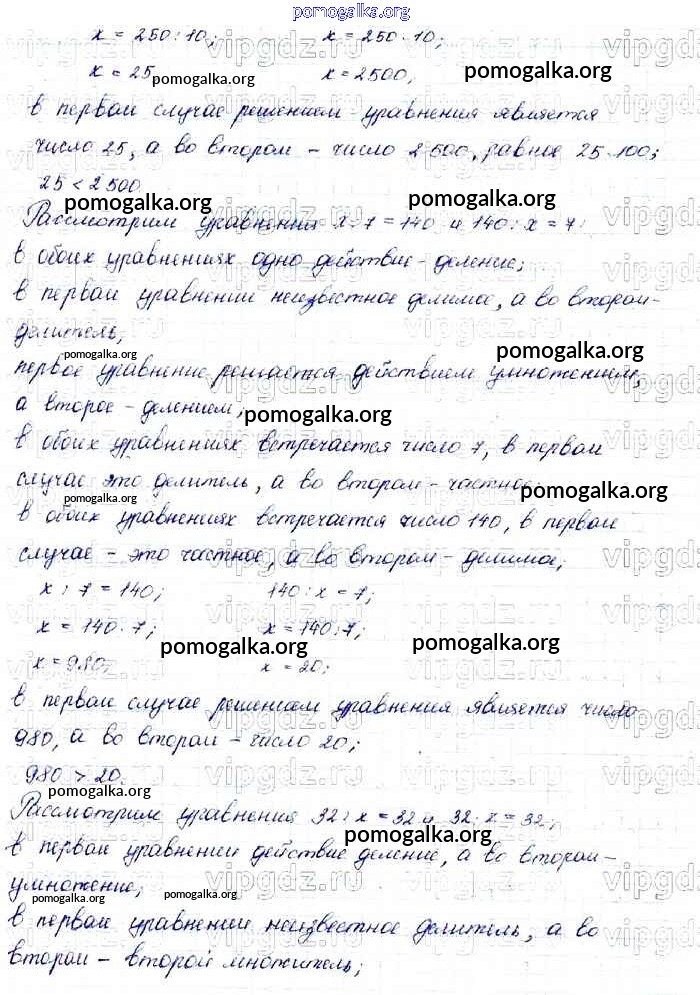 pomogalka.org
x = 250 : 10; x = 250 · 10;
x = 25 x = 2500,
pomogalka.org pomogalka.org
в первом случае решением уравнения является
число 25, а во втором – число 2500, равное 25·100;
25 < 2500
pomogalka.org
Рассмотрим уравнения x : 7 = 140 и 140 : x = 7:
pomogalka.org
в обоих уравнениях одно действие – деление;
в первом уравнении неизвестное делимое, а во втором –
делитель;
pomogalka.org pomogalka.org
первое уравнение решается действием умножением,
а второе – делением;
pomogalka.org
в обоих уравнениях встречается число 7, в первом
случае это делитель, а во втором – частное;
pomogalka.org pomogalka.org
в обоих уравнениях встречается число 140, в первом
случае – это частное, а во втором – делимое;
x : 7 = 140; 140 : x = 7;
x = 140 · 7; x = 140 : 7;
pomogalka.org pomogalka.org
x = 980, x = 20;
в первом случае решением уравнения является число
980, а во втором – число 20;
980 > 20.
pomogalka.org
Рассмотрим уравнения 32 : x = 32 и 32 · x = 32;
pomogalka.org
в первом уравнении действие деление, а во втором –
умножение;
pomogalka.org pomogalka.org
в первом уравнении неизвестное делитель, а во
втором – второй множитель;
vipgdz.ru